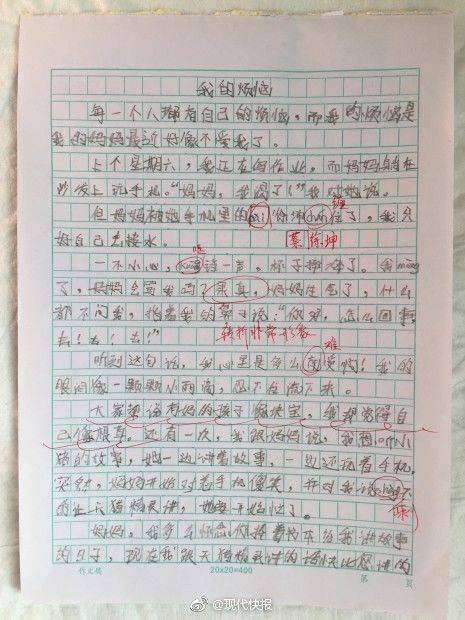 我的烦恼
每一个人都有自己的烦恼,而我的烦恼是
我的妈妈最近好像不爱我了。
上个星期六,我正在写作业,而妈妈躺在
沙发上玩手机。"妈妈,我渴了!"我对她说。
但妈妈被她手机里的 你 住了,我只
缠
好自己去接水。
蔡徐坤
一不小心, 一声,杯子摔碎了。我
哐
了,妈妈会骂我吗?果真,妈妈生气了,什么
都不问我,指着我的鼻子说:"你呀,怎么回事,
去!去!去!"
转折非常形象
听到这句话,我心里是多么 受啊!我的
难
眼泪像一颗颗小雨滴,忍不住流下来。
大家都说有妈的孩子像块宝,我却觉得自
己像根草。还有一次,我跟妈妈说,我想听小
猪的故事,她一边讲着故事,一边还看着手机,
突然,妈妈开始对着手机傻笑,并对我说
让天猫精灵讲,她 开始忙了。
妈妈,我多么怀念你捧着书本给我讲故事
的日子,现在我跟天猫精灵讲的话 比您讲的
作文稿
20×20=400
第 页
@现代快报